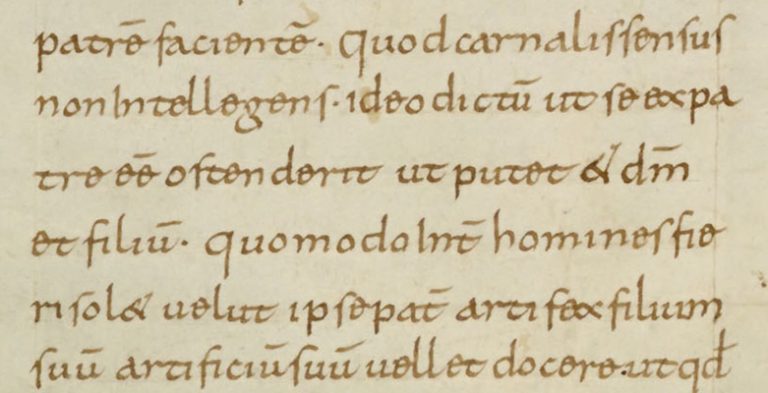 patrē facientē· Quod carnalis sensus
non intellegens· ideo dictū ut se ex pa
tre eē ostenderit ut putet & dm̄
et filiū· quomodo int̄ homines fie
ri sol& uelut ipse pat̄ artifex filium
suū artificiū suū uellet docere· ut qđ